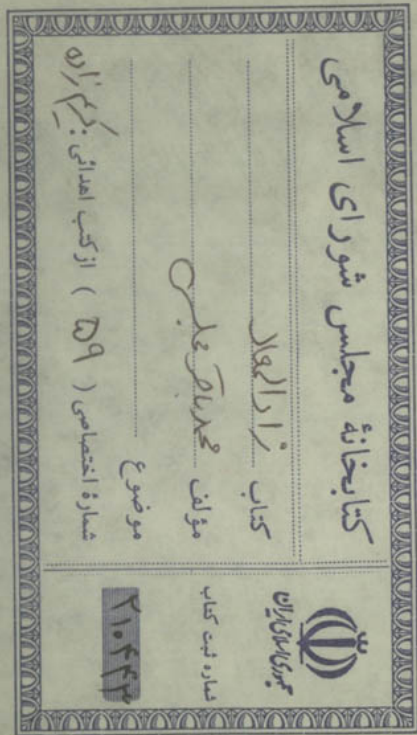 کتابخانهٔ مجلس شورای اسلامی
کتاب زادالمعاد
مؤلف محمد باقر مجلسی
موضوع
شمارهٔ اختصاصی ( ۵۹ ) از کتب اهدائی :
جمهوری اسلامی ایران
شماره ثبت کتاب
۲۱۰۴۴۳